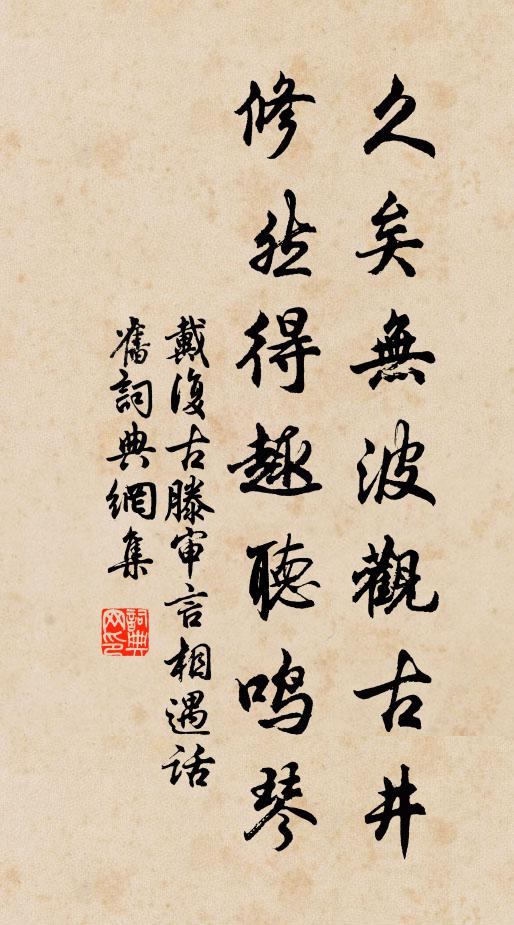 久矣無波觀古井
修然得趣聽鳴琴
戴復古滕审言相遇話
舊詞典網集
詞典網印